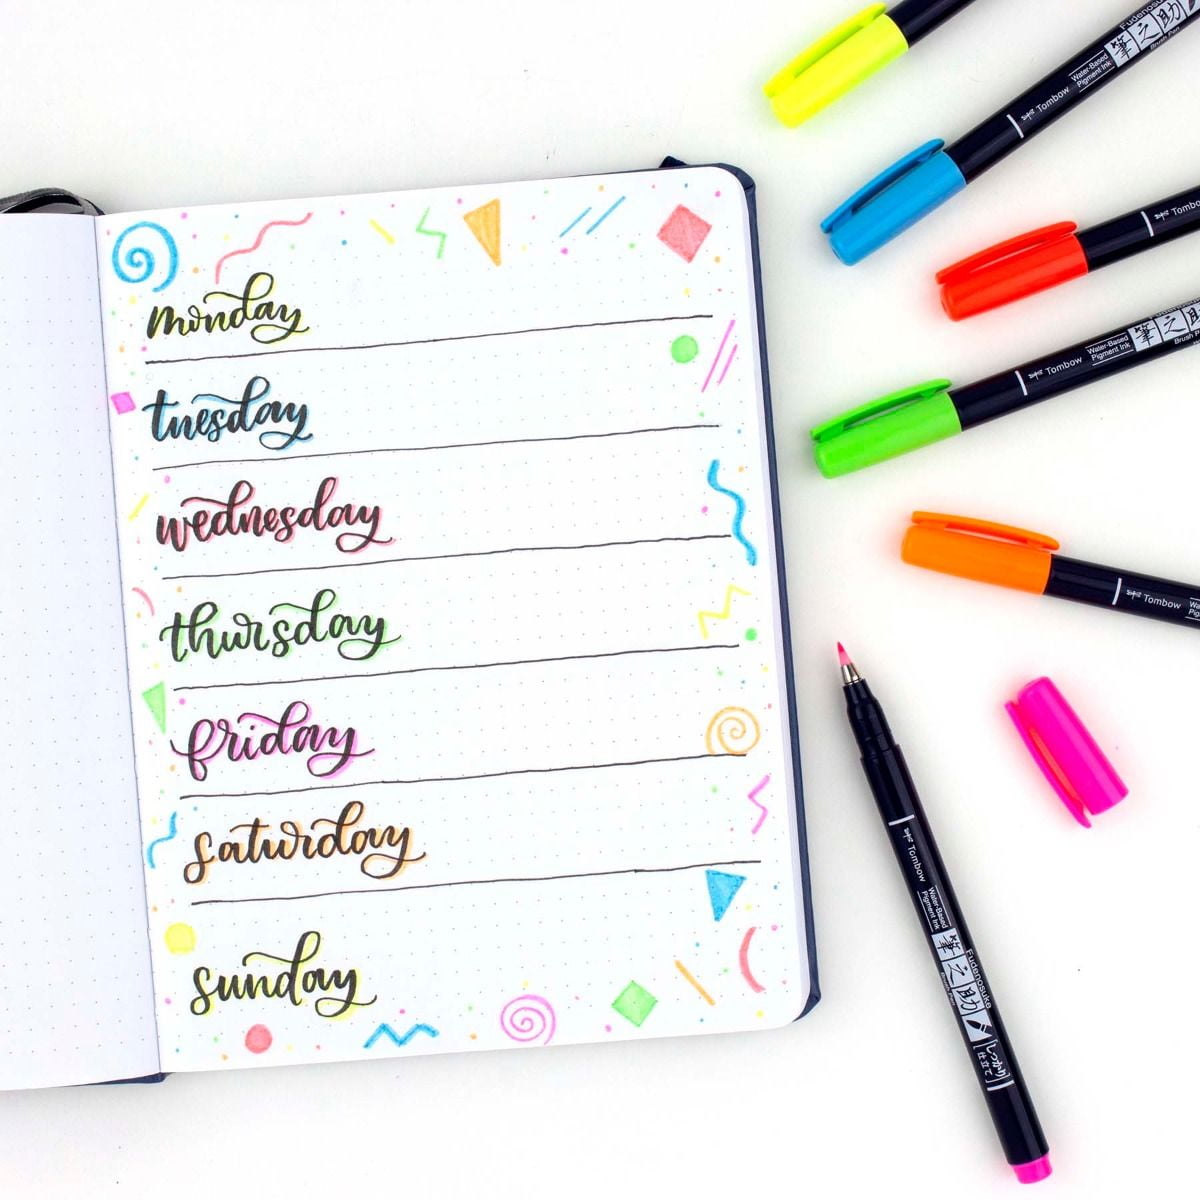 monday
tuesday
wednesday
thursday
friday
saturday
sunday
Fudenosuke
Water-Based
Pigment Ink
筆之助
Brush Pen
Tombow
Tombow
Water-Based
Pigment Ink
筆之助
Brush Pen
Tombow
Tombow
Tombow
Water-Based
Pigment Ink
筆之助
Fudenosuke
Brush Pen
しっかり
仕立て